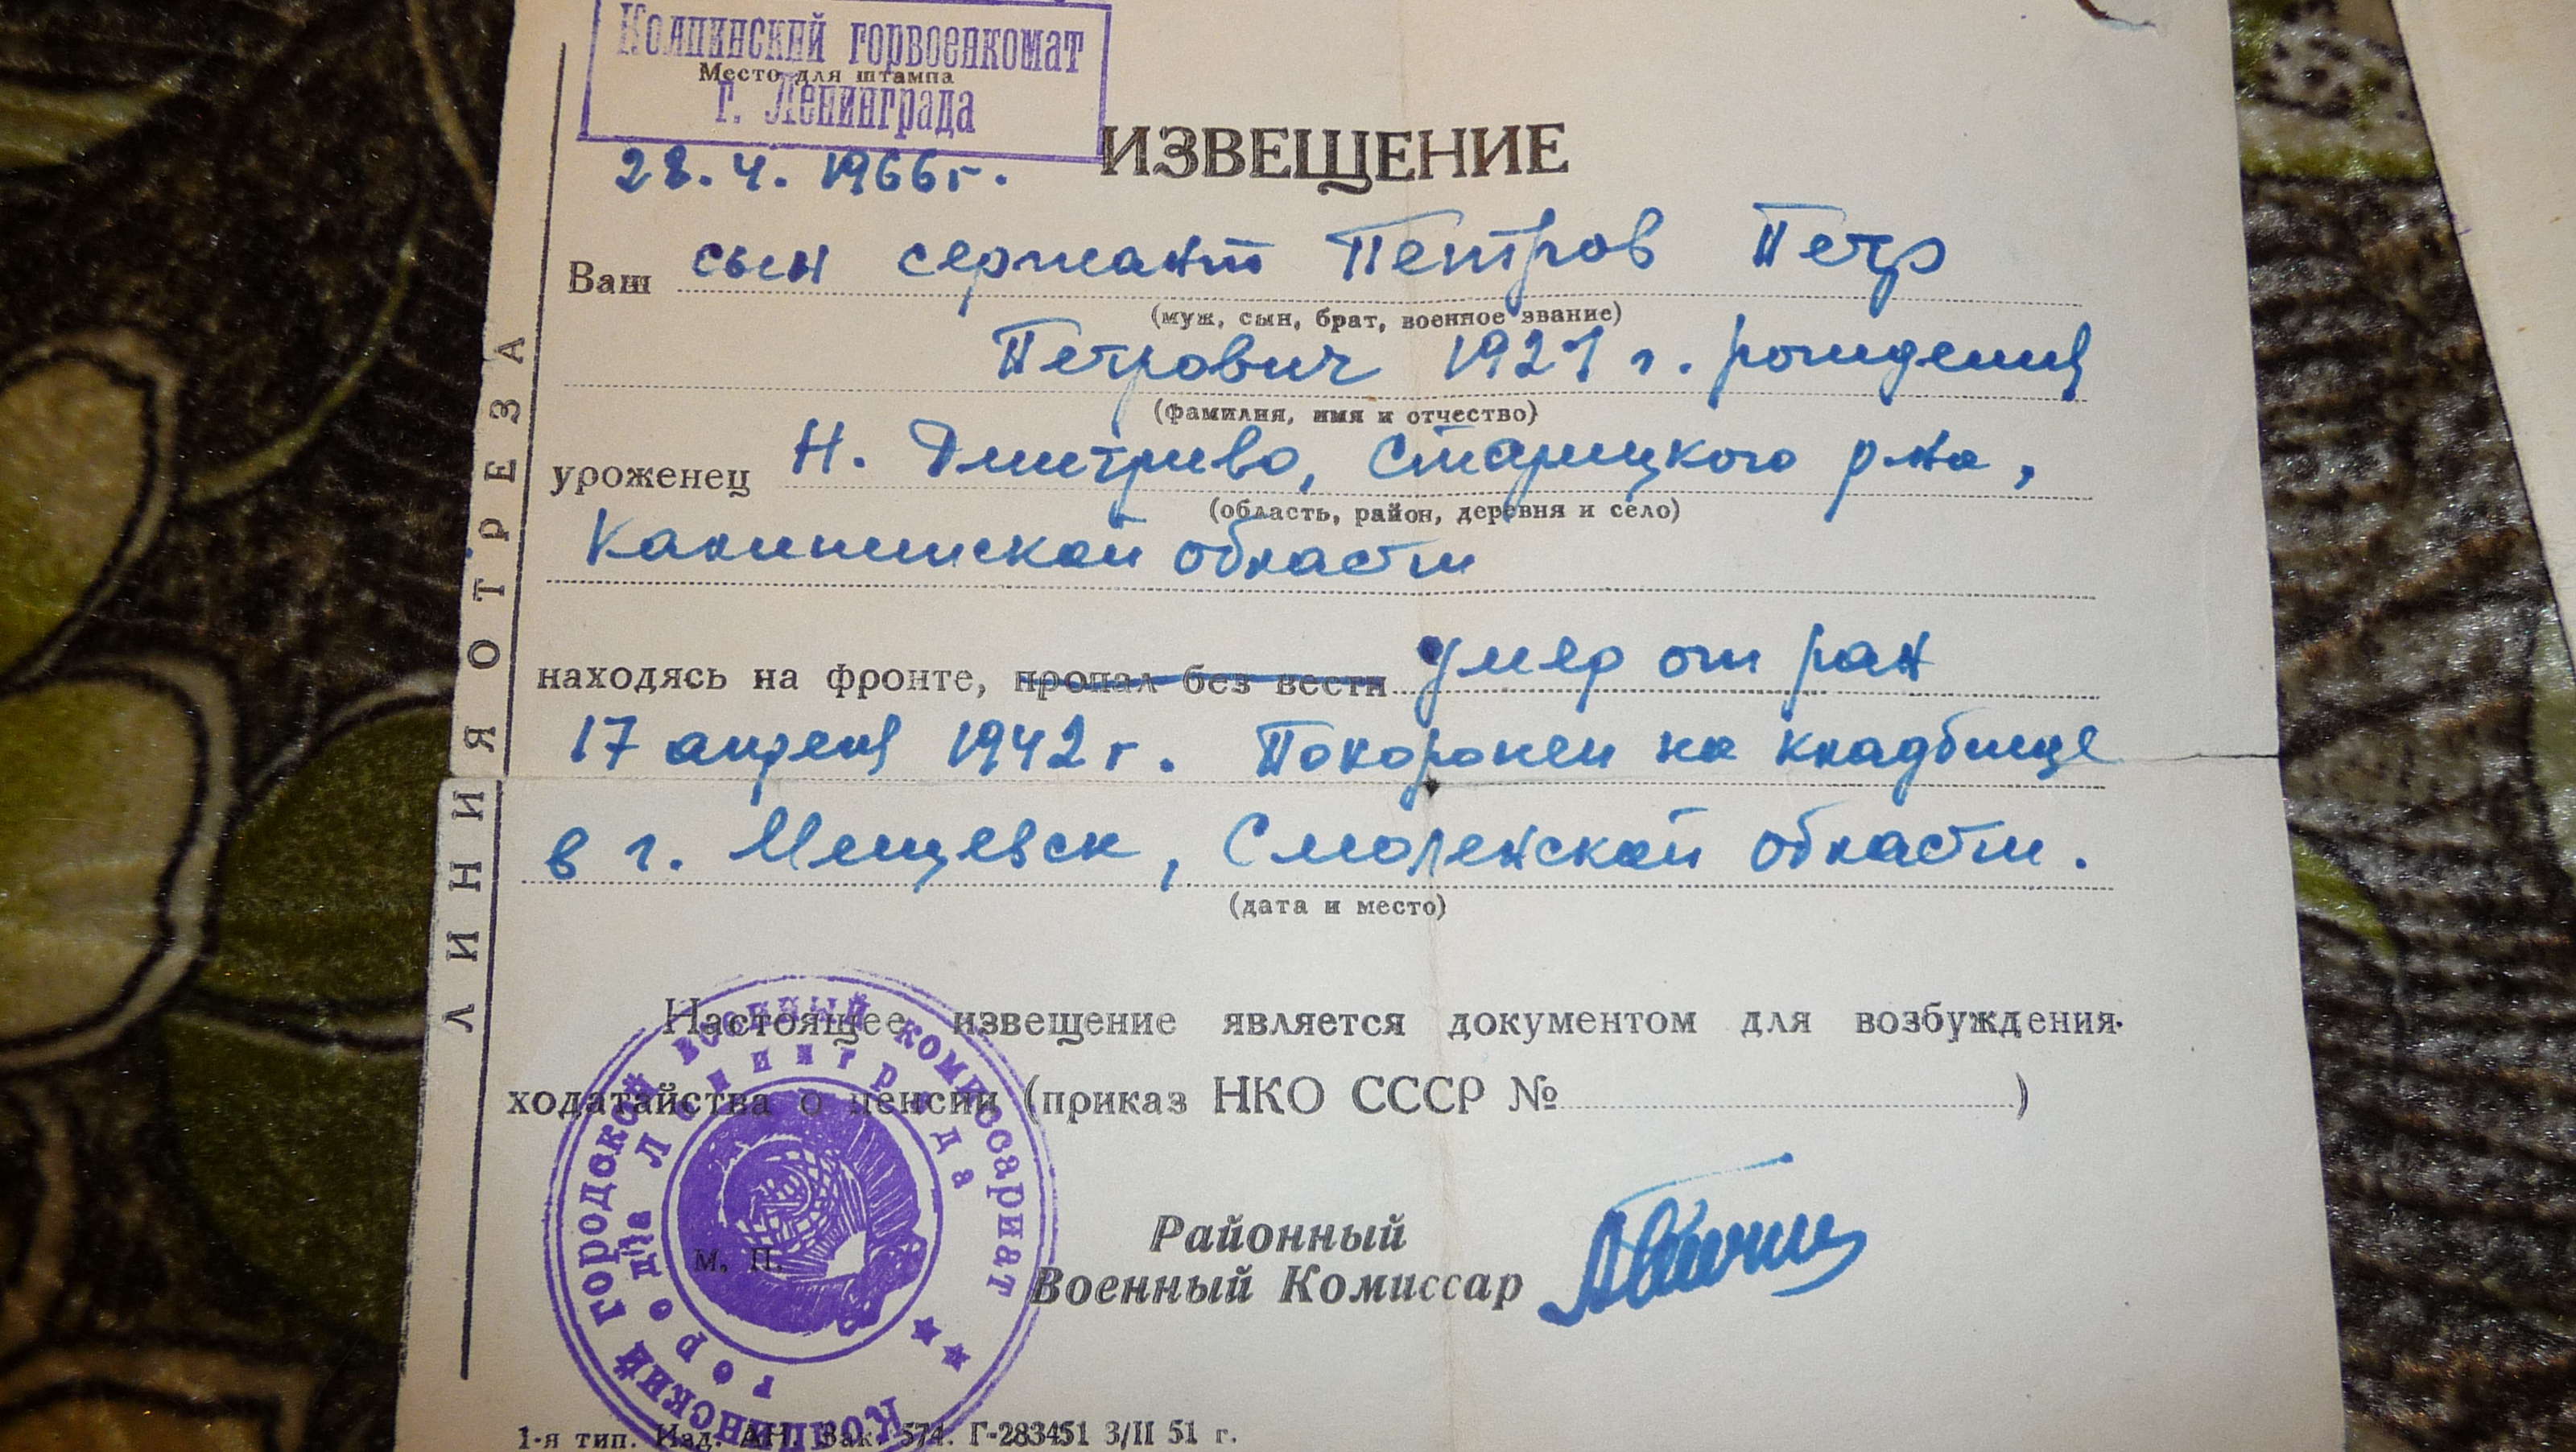 Колпинский горвоенкомат
Место для штампа
г. Ленинграда
28.4.1966г.
ИЗВЕЩЕНИЕ
Ваш сын сержант Петров Петр
(муж, сын, брат, военное звание)
Петрович 1921 г. рождения
(фамилия, имя и отчество)
уроженец Н. Дмитриево, Старицкого р-на,
(область, район, деревня и село)
Калининской области
находясь на фронте, пропал без вести умер от ран
17 апреля 1942 г. Похоронен на кладбище
в г. Мещевск, Смоленской области.
(дата и место)
Настоящее извещение является документом для возбуждения
ходатайства о пенсии (приказ НКО СССР № )
Районный
Военный Комиссар
М. П.
Колпинский городской военный комиссариат
города Ленинграда
1-я тип. Изд. АН. Зак. 574. Г-283451 3/II 51 г.
ЛИНИЯ ОТРЕЗА